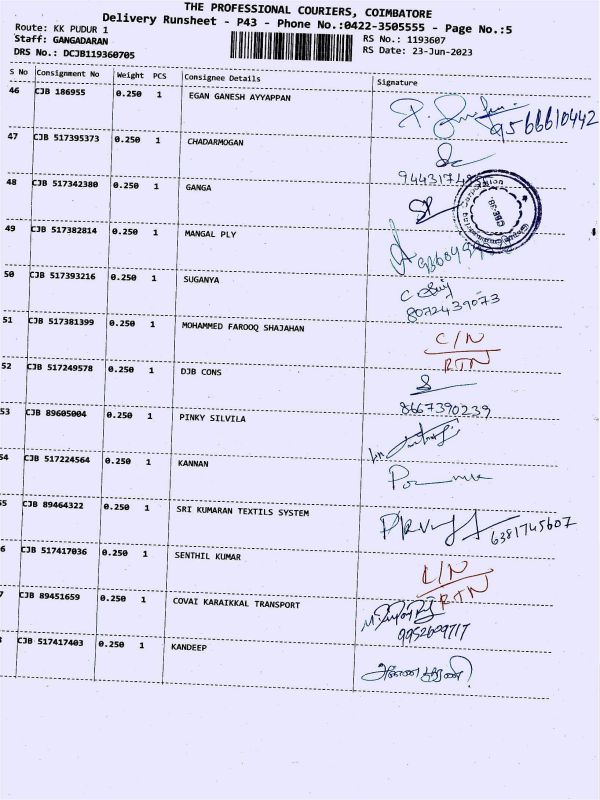 THE PROFESSIONAL COURIERS, COIMBATORE
Delivery Runsheet - P43 - Phone No.:0422-3505555 - Page No.:5
Route: KK PUDUR 1
RS No.: 1193607
Staff: GANGADARAN
RS Date: 23-Jun-2023
DRS No.: DCJB119360705
S No Consignment No Weight PCS Consignee Details Signature
46 CJB 186955 0.250 1 EGAN GANESH AYYAPPAN
9566610442
47 CJB 517395373 0.250 1 CHADARMOGAN
48 CJB 517342380 0.250 1 GANGA
49 CJB 517382814 0.250 1 MANGAL PLY
50 CJB 517393216 0.250 1 SUGANYA
8072439073
51 CJB 517381399 0.250 1 MOHAMMED FAROOQ SHAJAHAN C/N
RTN
52 CJB 517249578 0.250 1 DJB CONS
8667390239
53 CJB 89605004 0.250 1 PINKY SILVILA
54 CJB 517224564 0.250 1 KANNAN
55 CJB 89464322 0.250 1 SRI KUMARAN TEXTILS SYSTEM
6381745607
6 CJB 517417036 0.250 1 SENTHIL KUMAR L/N
RTN
7 CJB 89451659 0.250 1 COVAI KARAIKKAL TRANSPORT
9952609717
8 CJB 517417403 0.250 1 KANDEEP